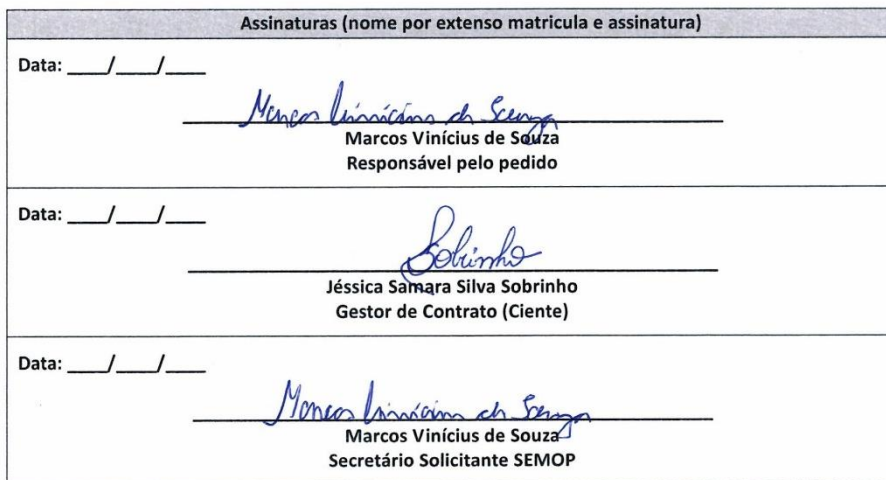 Assinaturas (nome por extenso matricula e assinatura)
Data: ____/____/____
Marcos Vinícius de Souza
Marcos Vinícius de Souza
Responsável pelo pedido
Data: ____/____/____
Sobrinho
Jéssica Samara Silva Sobrinho
Gestor de Contrato (Ciente)
Data: ____/____/____
Marcos Vinícius de Souza
Marcos Vinícius de Souza
Secretário Solicitante SEMOP